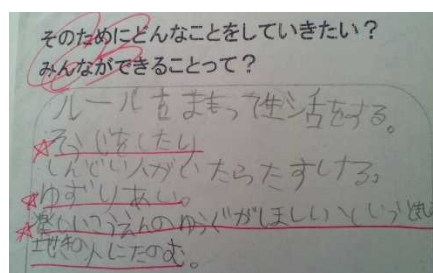 そのためにどんなことをしていきたい？
みんなができることって？
ルールをまもって生活をする。
そうじをしたり
しんどい人がいたらたすける。
ゆずりあい。
楽しいこうえんのゆうぐがほしい
地いきの人にたのむ。